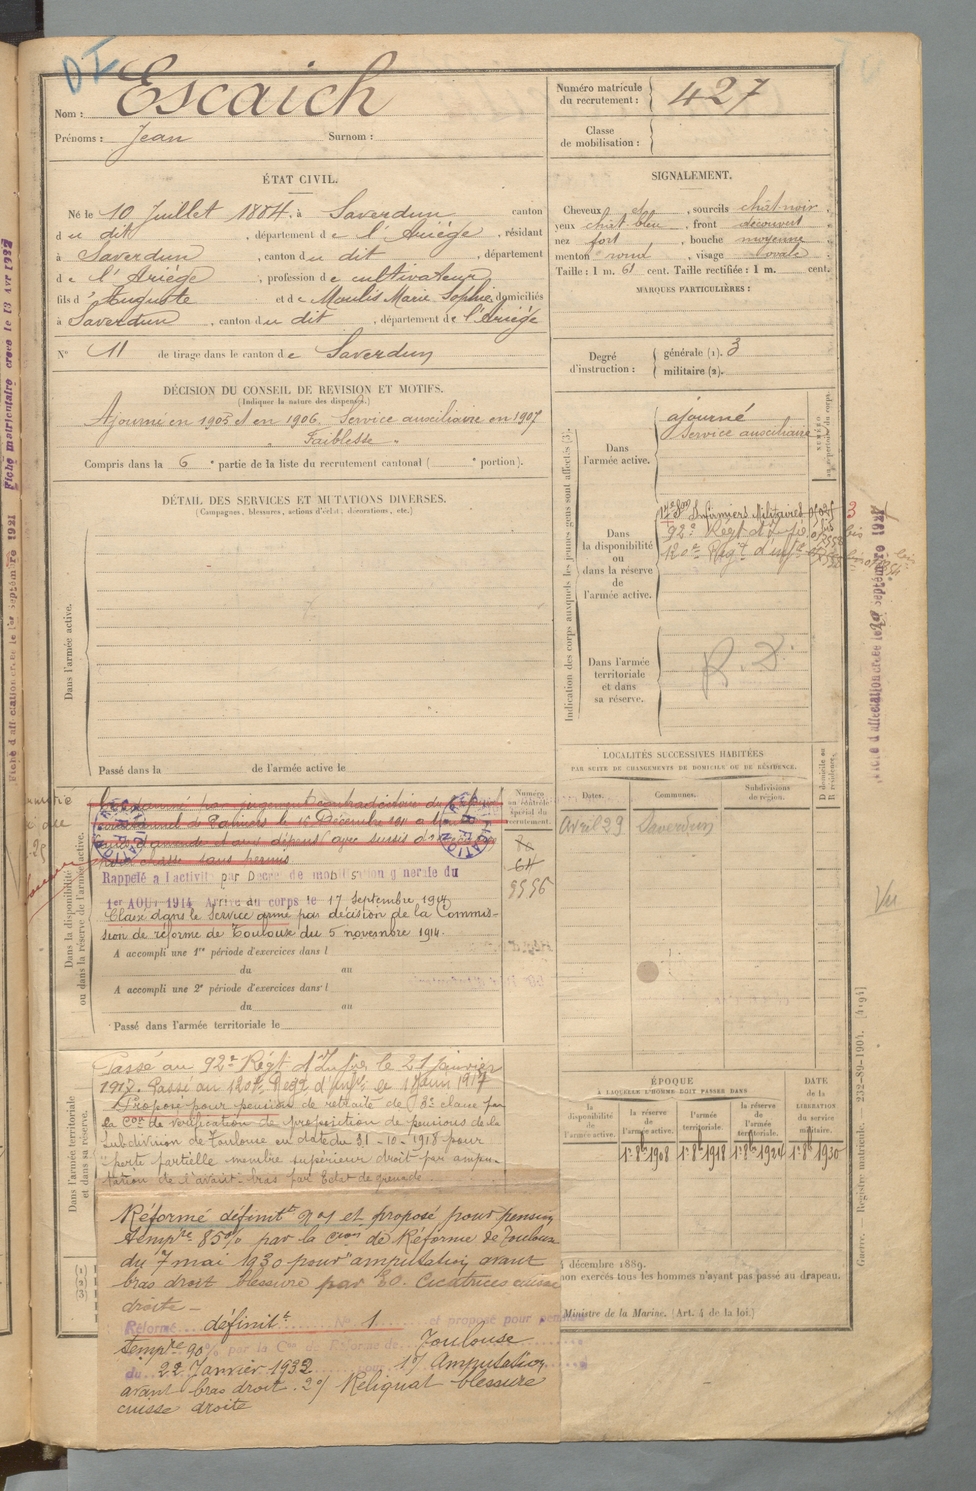 Nom : Escaich
Prénoms : Jean Surnom :
ÉTAT CIVIL.
Né le 10 Juillet 1884, à Saverdun canton
du dit, département de l'Ariège, résidant
à Saverdun, canton du dit, département
de l'Ariège, profession de cultivateur
fils d'Auguste et de Moulis Marie Sophie domiciliés
à Saverdun, canton du dit, département de l'Ariège
N° 11 de tirage dans le canton de Saverdun
DÉCISION DU CONSEIL DE REVISION ET MOTIFS.
(Indiquer la nature des dispenses.)
Ajourné en 1905 et en 1906. Service auxiliaire en 1907
" Faiblesse "
Compris dans la 6e partie de la liste du recrutement cantonal ( e portion).
DÉTAIL DES SERVICES ET MUTATIONS DIVERSES.
(Campagnes, blessures, actions d'éclat, décorations, etc.)
Dans l'armée active.
Passé dans la de l'armée active le
Dans la disponibilité
ou dans la réserve de l'armée active.
par jugement contradictoire du
de Pamiers le 16 Décembre 1911 à
amende et aux dépens avec sursis
pour chasse sans permis
Rappelé à l'activité par Décret de mobilisation générale du
1er AOUT 1914 Arrivé au corps le 17 Septembre 1914
Classé dans le Service armé par décision de la Commis-
sion de réforme de Toulouse du 5 novembre 1914.
A accompli une 1re période d'exercices dans l
du au
A accompli une 2e période d'exercices dans l
du au
Passé dans l'armée territoriale le
Numéro
au contrôle
spécial du
recrutement.
64
9556
Dans l'armée territoriale
et dans sa réserve.
Passé au 92e Régt d'Infie le 21 Janvier
1917. Passé au 120e Regt d'infie le 1 Juin 1917
Proposé pour pension de retraite de 3e classe par
la Con de vérification de proposition de pensions de la
Subdivision de Toulouse en date du 31-10-1918 pour
perte partielle membre supérieur droit par ampu-
tation de l'avant-bras par Eclat de grenade
Réformé définitt n°1 et proposé pour pension
tempre 85% par la Cion de Réforme de Toulouse
du 7 mai 1930 pour "amputation avant
bras droit blessure par EO. Cicatrices cuisse
droite -
Réformé définitt N° 1 et proposé pour pension
tempre 90% par la Con de Réforme de Toulouse
du 22 Janvier 1932 pour 1°/ Amputation
avant bras droit. 2°/ Reliquat blessure
cuisse droite
Numéro matricule
du recrutement : 427
Classe
de mobilisation :
SIGNALEMENT.
Cheveux , sourcils chât noir
yeux chât bleu, front découvert
nez fort, bouche moyenne
menton rond, visage ovale
Taille : 1 m. 61 cent. Taille rectifiée : 1 m. cent.
MARQUES PARTICULIÈRES :
Degré
d'instruction :
générale (1). 3
militaire (2).
Indication des corps auxquels les jeunes gens sont affectés (3).
Dans
l'armée active.
ajourné
Service auxiliaire
Dans
la disponibilité
ou
dans la réserve
de
l'armée active.
Infirmiers Militaires
92e Régt d'Infie
120e Régt d'infie
Dans l'armée
territoriale
et dans
sa réserve.
R.D.
LOCALITÉS SUCCESSIVES HABITÉES
PAR SUITE DE CHANGEMENTS DE DOMICILE OU DE RÉSIDENCE.
Dates. Communes. Subdivisions
de région. D domicile ou
R résidence.
Avril 29 Saverdun
ÉPOQUE
À LAQUELLE L'HOMME DOIT PASSER DANS
la
disponibilité
de
l'armée active.
la réserve
de
l'armée active.
l'armée
territoriale.
la réserve
de
l'armée
territoriale.
DATE
de la
LIBÉRATION
du service
militaire.
1er 8bre 1908 1er 8bre 1918 1er 8bre 1924 1er 8bre 1930
décembre 1889.
non exercés tous les hommes n'ayant pas passé au drapeau.
Ministre de la Marine. (Art. 4 de la loi.)
Guerre. Registre matricule. 232-89-1904. [4194]
Fiche d'affectation créée le 1er Septembre 1921
Fiche matriculaire créée le 13 Avr 1932
Vu